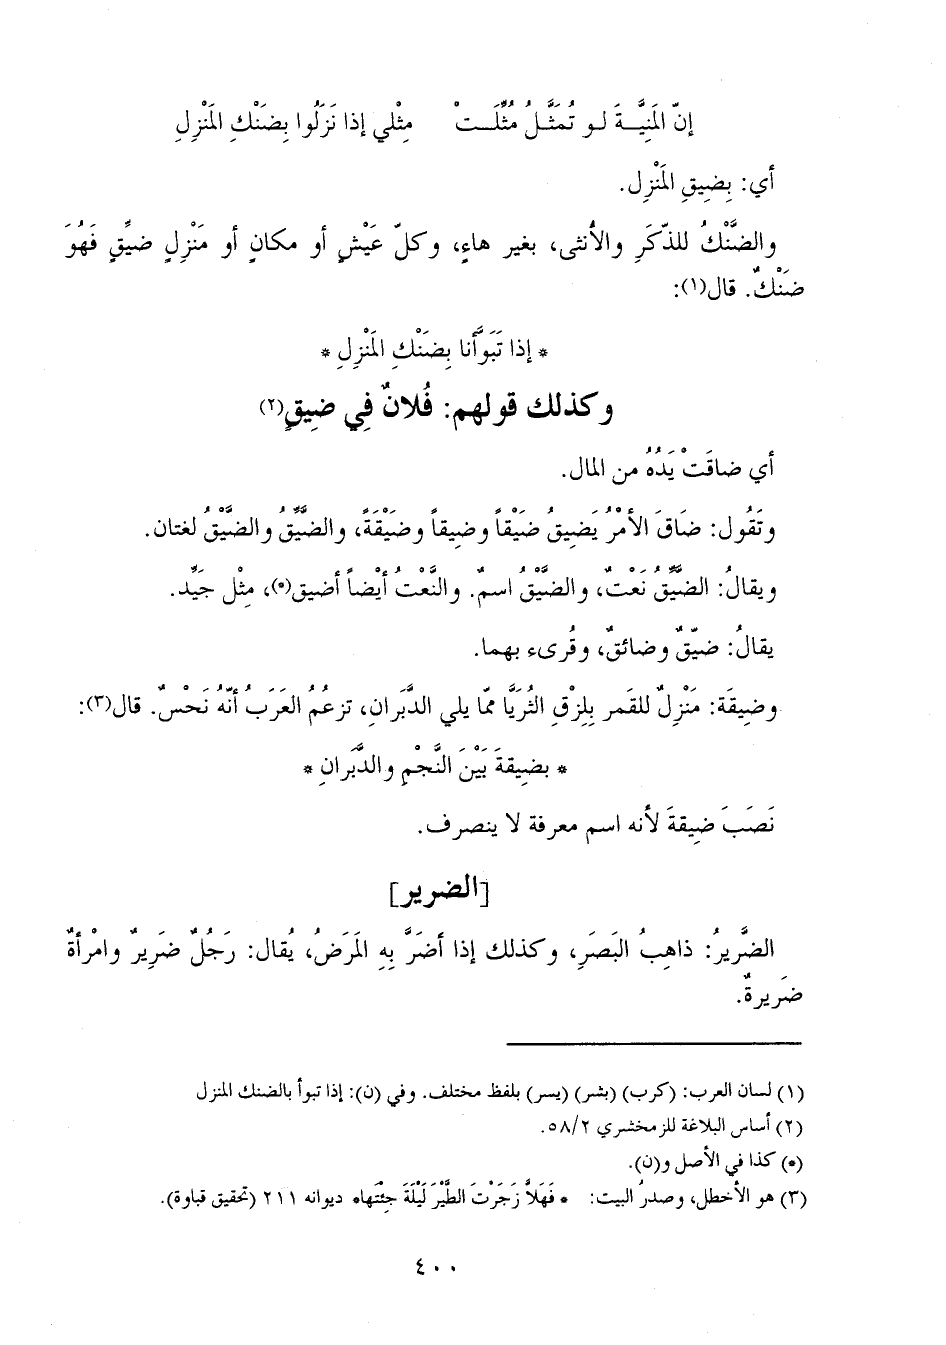 إنّ المَنِيَّـــةَ لـو تُمَثَّـلُ مُثِّلَـــتْ مِثْلي إذا نَزَلُوا بِضَنْكِ المَنْزِلِ
أي: بِضِيقِ المَنْزِل.
والضَّنْكُ للذّكَرِ والأُنثى، بغير هاءٍ، وكلّ عَيْشٍ أو مكانٍ أو مَنْزِلٍ ضيِّقٍ فَهُوَ
ضَنْكٌ. قال(١):
* إذا تَبَوَّأنا بِضَنْكِ المَنْزِلِ *
وكذلك قولهم: فُلانٌ فِي ضِيقٍ(٢)
أي ضاقَتْ يَدُهُ من المال.
وتَقُول: ضَاقَ الأمْرُ يَضِيقُ ضَيْقاً وضِيقاً وضَيْقَةً، والضَّيِّقُ والضَّيْقُ لغتان.
ويقالُ: الضَّيِّقُ نَعْتٌ، والضَّيْقُ اسمٌ. والنَّعْتُ أيْضاً أضيق(*)، مِثْل جَيِّد.
يقالُ: ضيّقٌ وضائقٌ، وقُرىء بهما.
وضِيقَة: مَنْزِلٌ للقمر بِلِزْقِ الثُريَّا ممّا يلي الدَّبَرانِ، تزعُمُ العَرَبُ أنّهُ نَحْسٌ. قال(٣):
* بضِيقةَ بَيْنَ النَّجْمِ والدَّبَرانِ *
نَصَبَ ضِيقةَ لأنه اسم معرفة لا ينصرف.
[الضرير]
الضَّريرُ: ذاهِبُ البَصَرِ، وكذلك إذا أضَرَّ بِهِ المَرَضُ، يُقال: رَجُلٌ ضَرِيرٌ وامْرأةٌ
ضَريرةٌ.
(١) لسان العرب: (كرب) (بشر) (يسر) بلفظ مختلف. وفي (ن): إذا تبوأ بالضنك المنزل
(٢) أساس البلاغة للزمخشري ٥٨/٢.
(*) كذا في الأصل و(ن).
(٣) هو الأخطل، وصدرُ البيت: * فَهَلاَّ زَجَرْتَ الطَّيْرَ لَيْلَةَ جِئْتَها* ديوانه ٢١١ (تحقيق قباوة).
٤٠٠